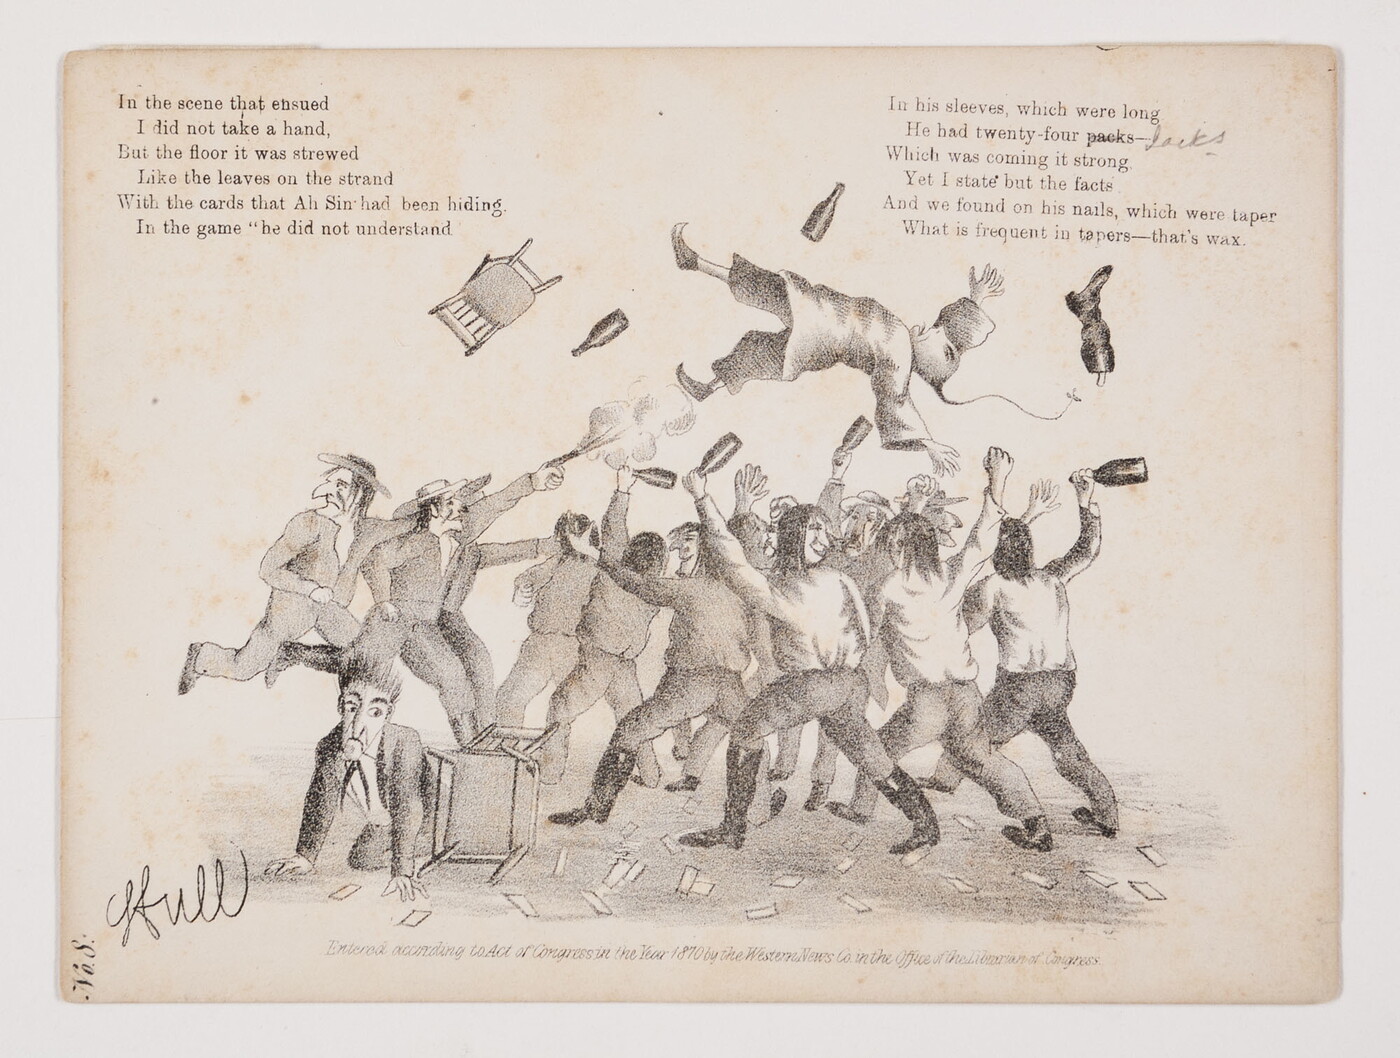 In the scene that ensued
I did not take a hand,
But the floor it was strewed
Like the leaves on the strand
With the cards that Ah Sin had been hiding.
In the game "he did not understand
In his sleeves, which were long
He had twenty-four packs—Jacks
Which was coming it strong,
Yet I state but the facts
And we found on his nails, which were taper
What is frequent in tapers—that's wax.
Hull
No. 8.
Entered according to Act of Congress in the Year 1870 by the Western News Co. in the Office of the Librarian of Congress.